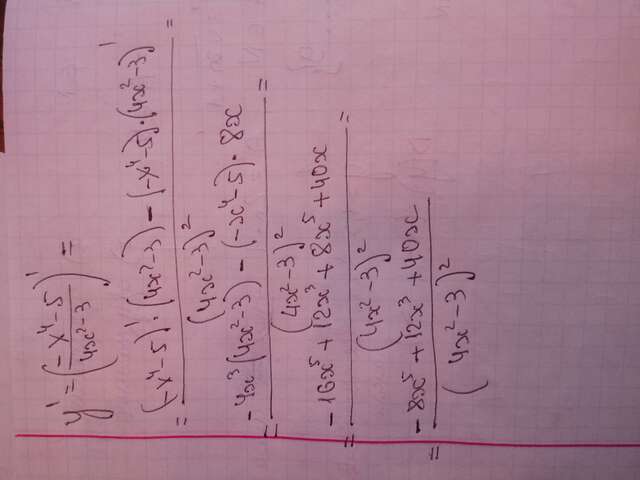 y' = (-x⁴-5 / 4x²-3)' =
= (-x⁴-5)'·(4x²-3) - (-x⁴-5)·(4x²-3)' / (4x²-3)² =
= -4x³(4x²-3) - (-x⁴-5)·8x / (4x²-3)² =
= -16x⁵+12x³+8x⁵+40x / (4x²-3)² =
= -8x⁵+12x³+40x / (4x²-3)²